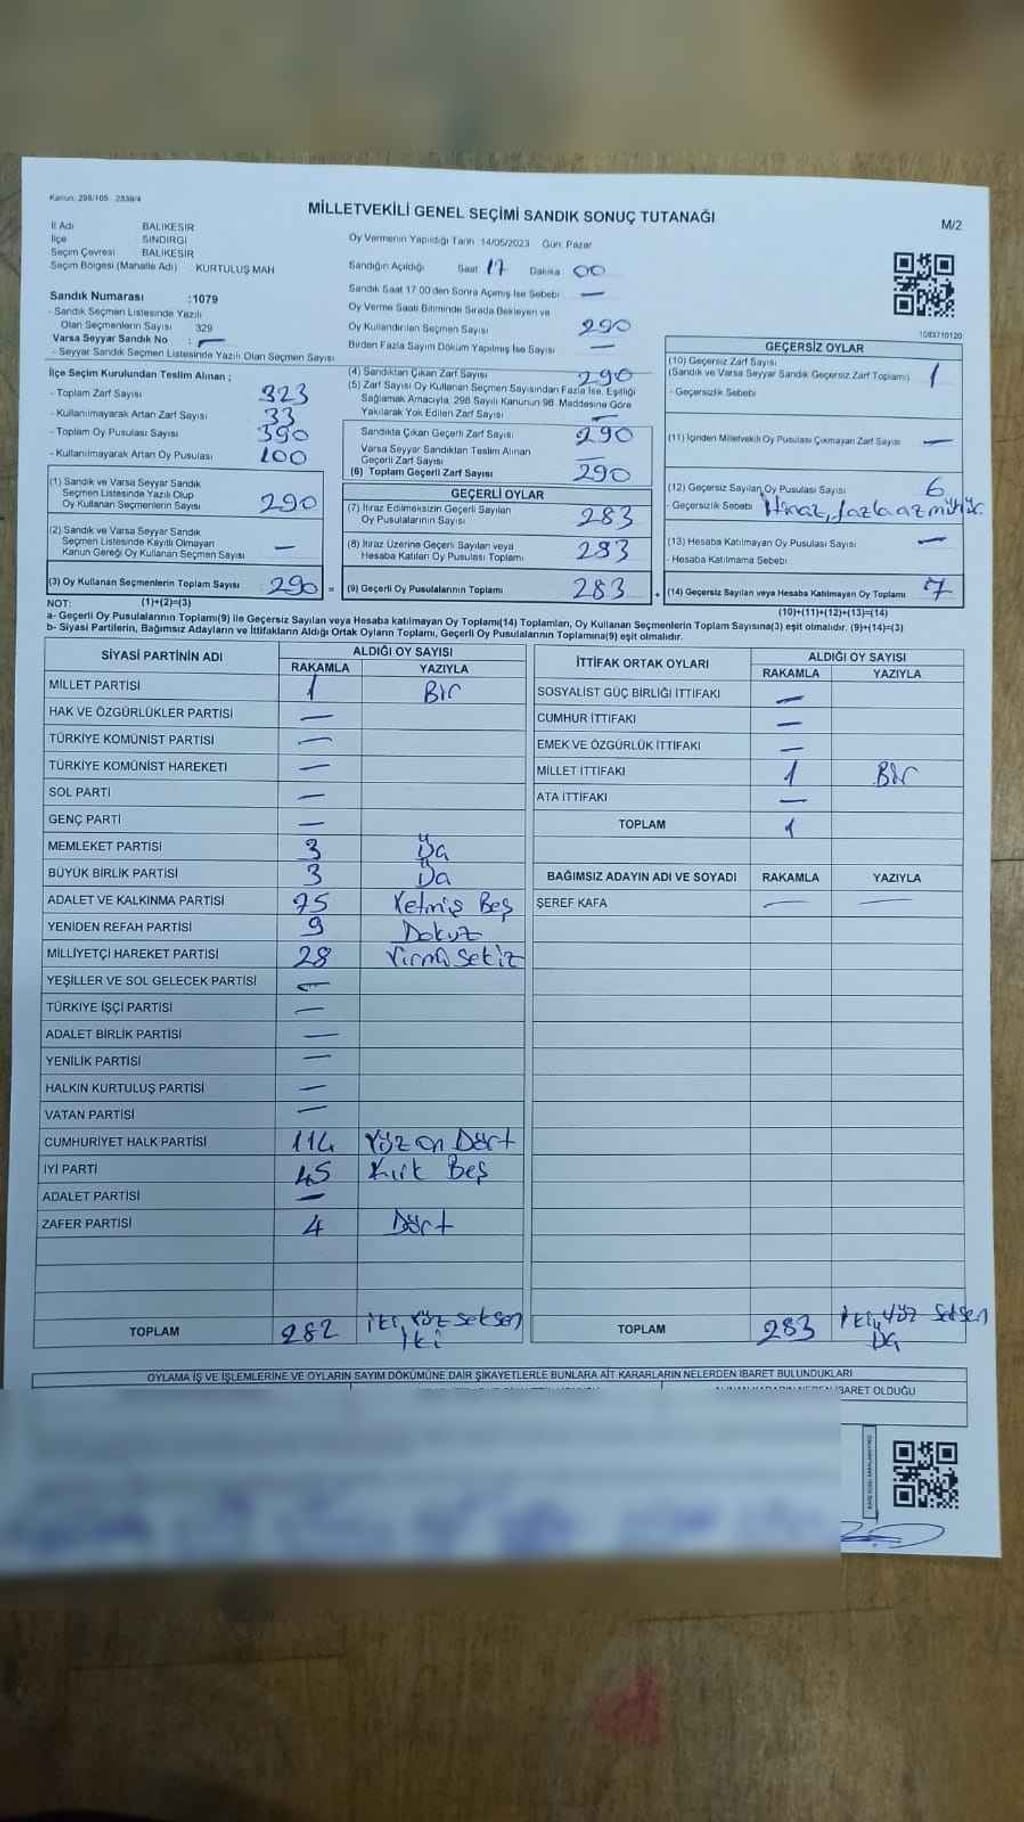 Kanun: 298/105 2839/4
MİLLETVEKİLİ GENEL SEÇİMİ SANDIK SONUÇ TUTANAĞI
M/2
İl Adı BALIKESİR
İlçe SINDIRGI
Seçim Çevresi BALIKESİR
Seçim Bölgesi (Mahalle Adı) KURTULUŞ MAH
Sandık Numarası :1079
- Sandık Seçmen Listesinde Yazılı
Olan Seçmenlerin Sayısı 329
Varsa Seyyar Sandık No : —
- Seyyar Sandık Seçmen Listesinde Yazılı Olan Seçmen Sayısı
Oy Vermenin Yapıldığı Tarih :14/05/2023 Gün: Pazar
Sandığın Açıldığı Saat 17 Dakika 00
Sandık Saat 17.00'den Sonra Açımış İse Sebebi —
Oy Verme Saati Bitiminde Sırada Bekleyen ve
Oy Kullandırılan Seçmen Sayısı 290
Birden Fazla Sayım Döküm Yapılmış İse Sayısı —
1083710120
İlçe Seçim Kurulundan Teslim Alınan ;
- Toplam Zarf Sayısı 323
- Kullanılmayarak Artan Zarf Sayısı 33
- Toplam Oy Pusulası Sayısı 390
- Kullanılmayarak Artan Oy Pusulası 100
(1) Sandık ve Varsa Seyyar Sandık
Seçmen Listesinde Yazılı Olup
Oy Kullanan Seçmenlerin Sayısı 290
(2) Sandık ve Varsa Seyyar Sandık
Seçmen Listesinde Kayıtlı Olmayan
Kanun Gereği Oy Kullanan Seçmen Sayısı —
(3) Oy Kullanan Seçmenlerin Toplam Sayısı 290 =
(4) Sandıktan Çıkan Zarf Sayısı 290
(5) Zarf Sayısı Oy Kullanan Seçmen Sayısından Fazla İse, Eşitliği
Sağlamak Amacıyla, 298 Sayılı Kanunun 98. Maddesine Göre
Yakılarak Yok Edilen Zarf Sayısı —
Sandıkta Çıkan Geçerli Zarf Sayısı 290
Varsa Seyyar Sandıktan Teslim Alınan
Geçerli Zarf Sayısı —
(6) Toplam Geçerli Zarf Sayısı 290
GEÇERLİ OYLAR
(7) İtiraz Edilmeksizin Geçerli Sayılan
Oy Pusulalarının Sayısı 283
(8) İtiraz Üzerine Geçerli Sayılan veya
Hesaba Katılan Oy Pusulası Toplamı 283
(9) Geçerli Oy Pusulalarının Toplamı 283
GEÇERSİZ OYLAR
(10) Geçersiz Zarf Sayısı
(Sandık ve Varsa Seyyar Sandık Geçersiz Zarf Toplamı) 1
- Geçersizlik Sebebi
(11) İçinden Milletvekili Oy Pusulası Çıkmayan Zarf Sayısı —
(12) Geçersiz Sayılan Oy Pusulası Sayısı 6
- Geçersizlik Sebebi
(13) Hesaba Katılmayan Oy Pusulası Sayısı —
- Hesaba Katılmama Sebebi
(14) Geçersiz Sayılan veya Hesaba Katılmayan Oy Toplamı 7
NOT: (1)+(2)=(3)
(10)+(11)+(12)+(13)=(14)
a- Geçerli Oy Pusulalarının Toplamı(9) ile Geçersiz Sayılan veya Hesaba katılmayan Oy Toplamı(14) Toplamları, Oy Kullanan Seçmenlerin Toplam Sayısına(3) eşit olmalıdır. (9)+(14)=(3)
b- Siyasi Partilerin, Bağımsız Adayların ve İttifakların Aldığı Ortak Oyların Toplamı, Geçerli Oy Pusulalarının Toplamına(9) eşit olmalıdır.
SİYASİ PARTİNİN ADI ALDIĞI OY SAYISI
RAKAMLA YAZIYLA
MİLLET PARTİSİ 1 Bir
HAK VE ÖZGÜRLÜKLER PARTİSİ —
TÜRKİYE KOMÜNİST PARTİSİ —
TÜRKİYE KOMÜNİST HAREKETİ —
SOL PARTİ —
GENÇ PARTİ —
MEMLEKET PARTİSİ 3 Üç
BÜYÜK BİRLİK PARTİSİ 3 Üç
ADALET VE KALKINMA PARTİSİ 75 Yetmiş Beş
YENİDEN REFAH PARTİSİ 9 Dokuz
MİLLİYETÇİ HAREKET PARTİSİ 28 Yirmi Sekiz
YEŞİLLER VE SOL GELECEK PARTİSİ —
TÜRKİYE İŞÇİ PARTİSİ —
ADALET BİRLİK PARTİSİ —
YENİLİK PARTİSİ —
HALKIN KURTULUŞ PARTİSİ —
VATAN PARTİSİ —
CUMHURİYET HALK PARTİSİ 114 Yüz on Dört
İYİ PARTİ 45 Kırk Beş
ADALET PARTİSİ —
ZAFER PARTİSİ 4 Dört
TOPLAM 282 İki Yüz seksen
İki
İTTİFAK ORTAK OYLARI ALDIĞI OY SAYISI
RAKAMLA YAZIYLA
SOSYALİST GÜÇ BİRLİĞİ İTTİFAKI —
CUMHUR İTTİFAKI —
EMEK VE ÖZGÜRLÜK İTTİFAKI —
MİLLET İTTİFAKI 1 Bir
ATA İTTİFAKI —
TOPLAM 1
BAĞIMSIZ ADAYIN ADI VE SOYADI RAKAMLA YAZIYLA
ŞEREF KAFA — —
TOPLAM 283 İki Yüz Seksen
Üç
OYLAMA İŞ VE İŞLEMLERİNE VE OYLARIN SAYIM DÖKÜMÜNE DAİR ŞİKAYETLERLE BUNLARA AİT KARARLARIN NELERDEN İBARET BULUNDUKLARI
İBARET OLDUĞU